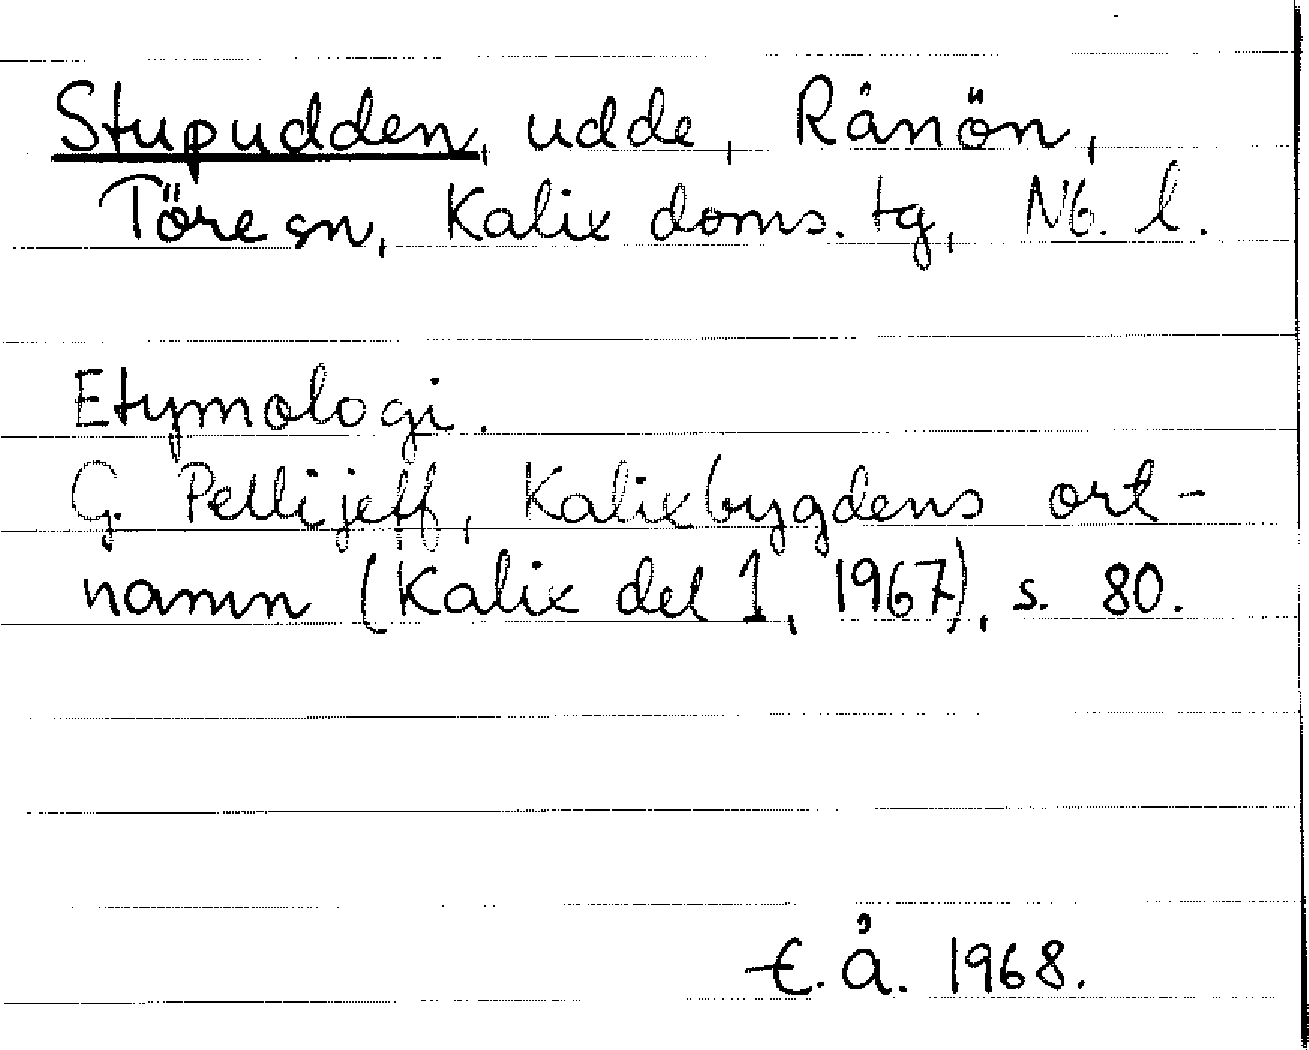 Stupudden, udde, Rånön,
Töre sn, Kalix doms. tg, Nb. l.
Etymologi.
G. Pellijeff, Kalixbygdens ort-
namn (Kalix del 1, 1967), s. 80.
E. Å. 1968.